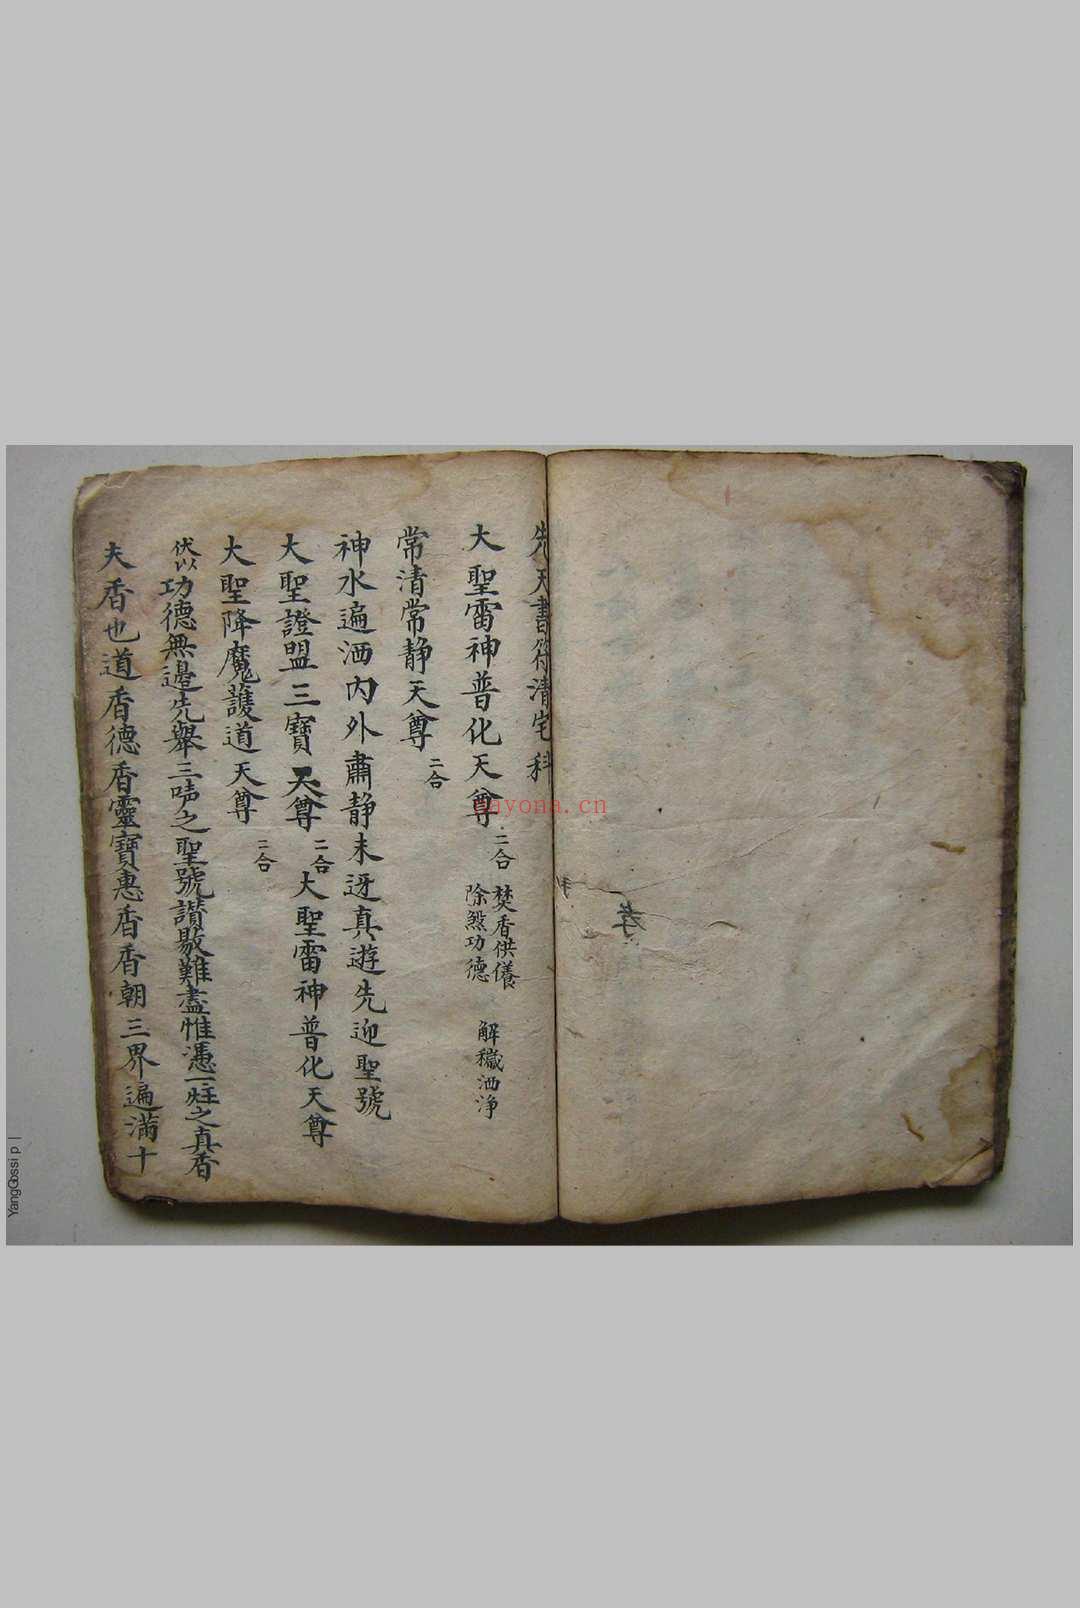 先天書符清宅科
大聖雷神普化天尊 二合 焚香供儀 除煞功德 解穢洒净
常清常静天尊 二合
神水遍洒内外肅静未迓真遊先迎聖號
大聖證盟三寶天尊 二合 大聖雷神普化天尊
大聖降魔護道天尊 二合
伏以功德無邊先舉三啨之聖號讃敭難盡惟憑一炷之真香
夫香也道香德香靈寶惠香香朝三界遍滿十
dayona.cn
YangGossip